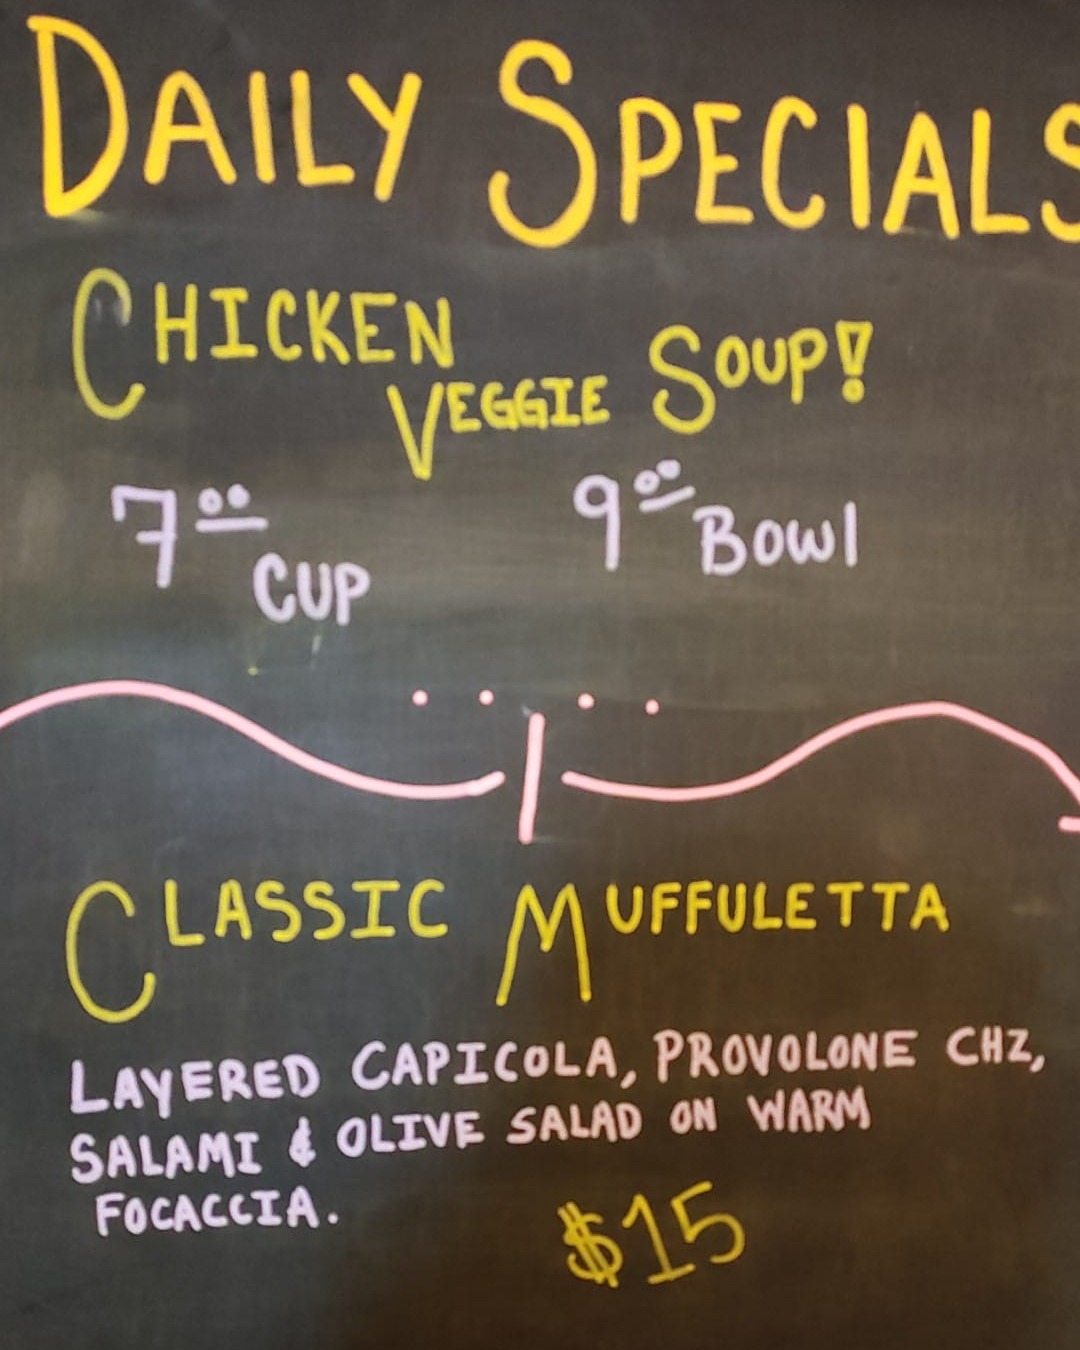 DAILY SPECIALS
CHICKEN
VEGGIE SOUP!
7⁰⁰ CUP 9⁰⁰ BOWl
CLASSIC MUFFULETTA
LAYERED CAPICOLA, PROVOLONE CHZ,
SALAMI & OLIVE SALAD ON WARM
FOCACCIA.
$15